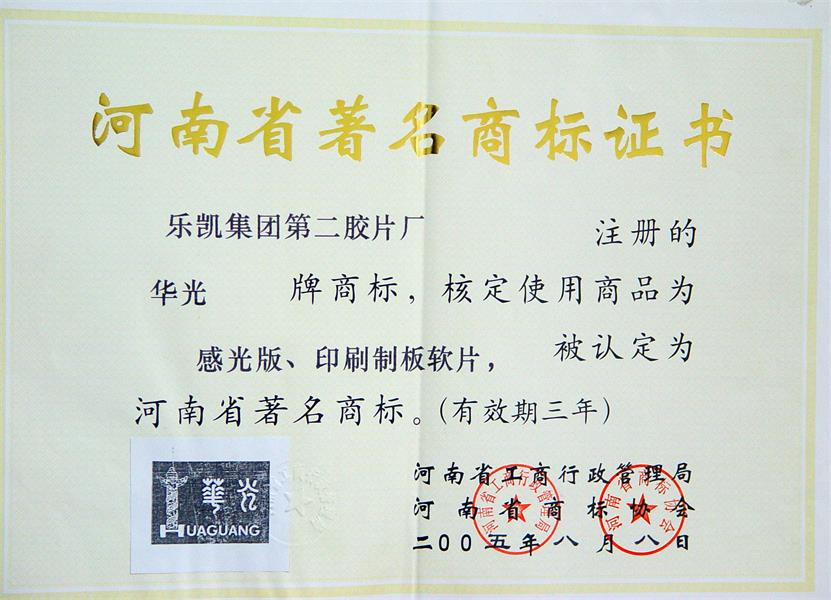 河南省著名商标证书
乐凯集团第二胶片厂 注册的
华光 牌商标，核定使用商品为
感光版、印刷制板软片， 被认定为
河南省著名商标。（有效期三年）
華光
HUAGUANG
河南省工商行政管理局
河南省商标协会
二00五年八月八日
河南省工商行政管理局
河南省商标协会